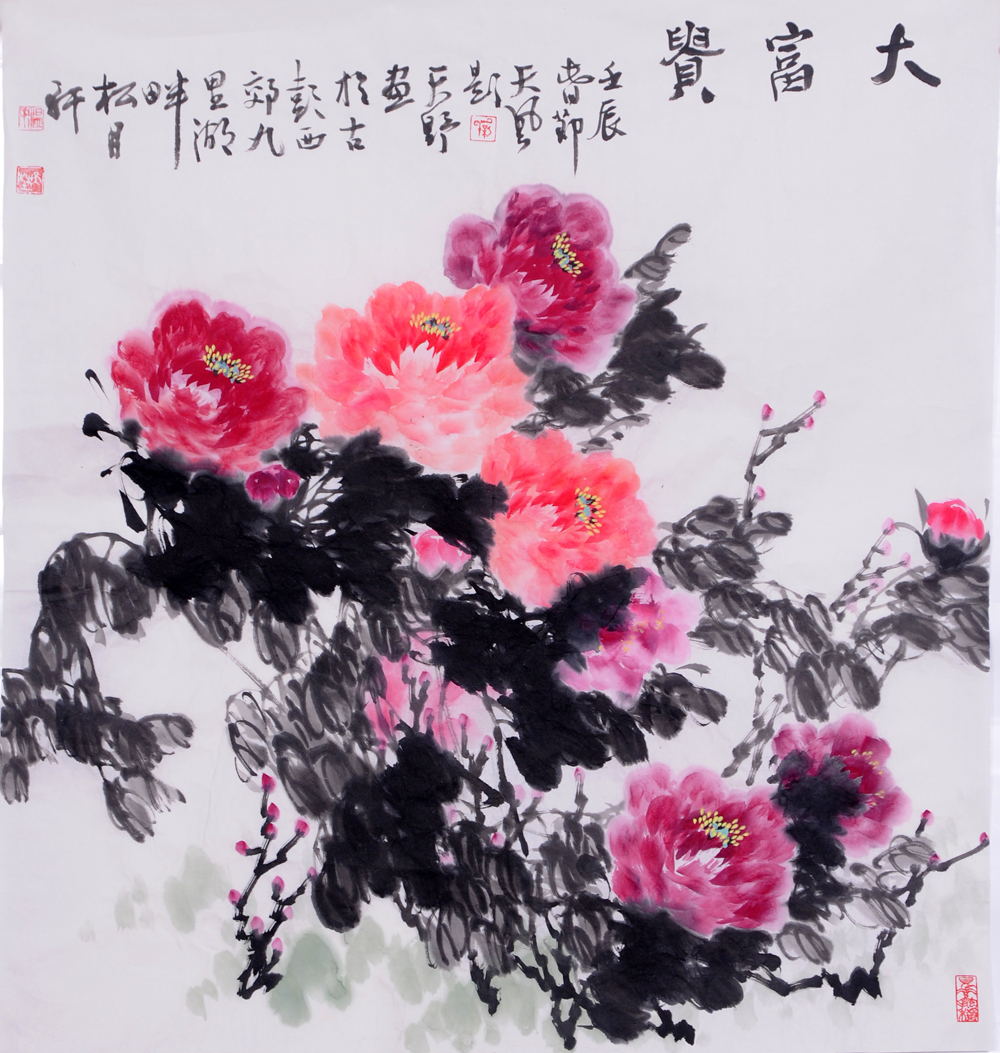 大富貴
壬辰
旾節
天風
題
天野
畫
於古
彭西
郊九
里湖
畔
松月
軒